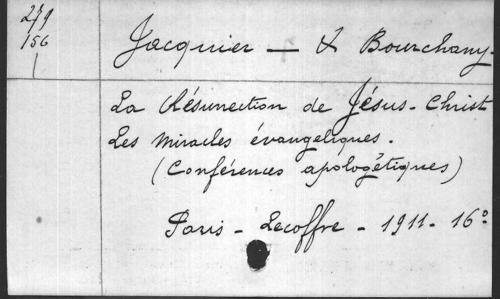 279
156
Jacquier — & Bourchany.
La Résurrection de Jésus-Christ
Les Miracles évangéliques.
(Conférences apologétiques)
Paris - Lecoffre - 1911 - 16°